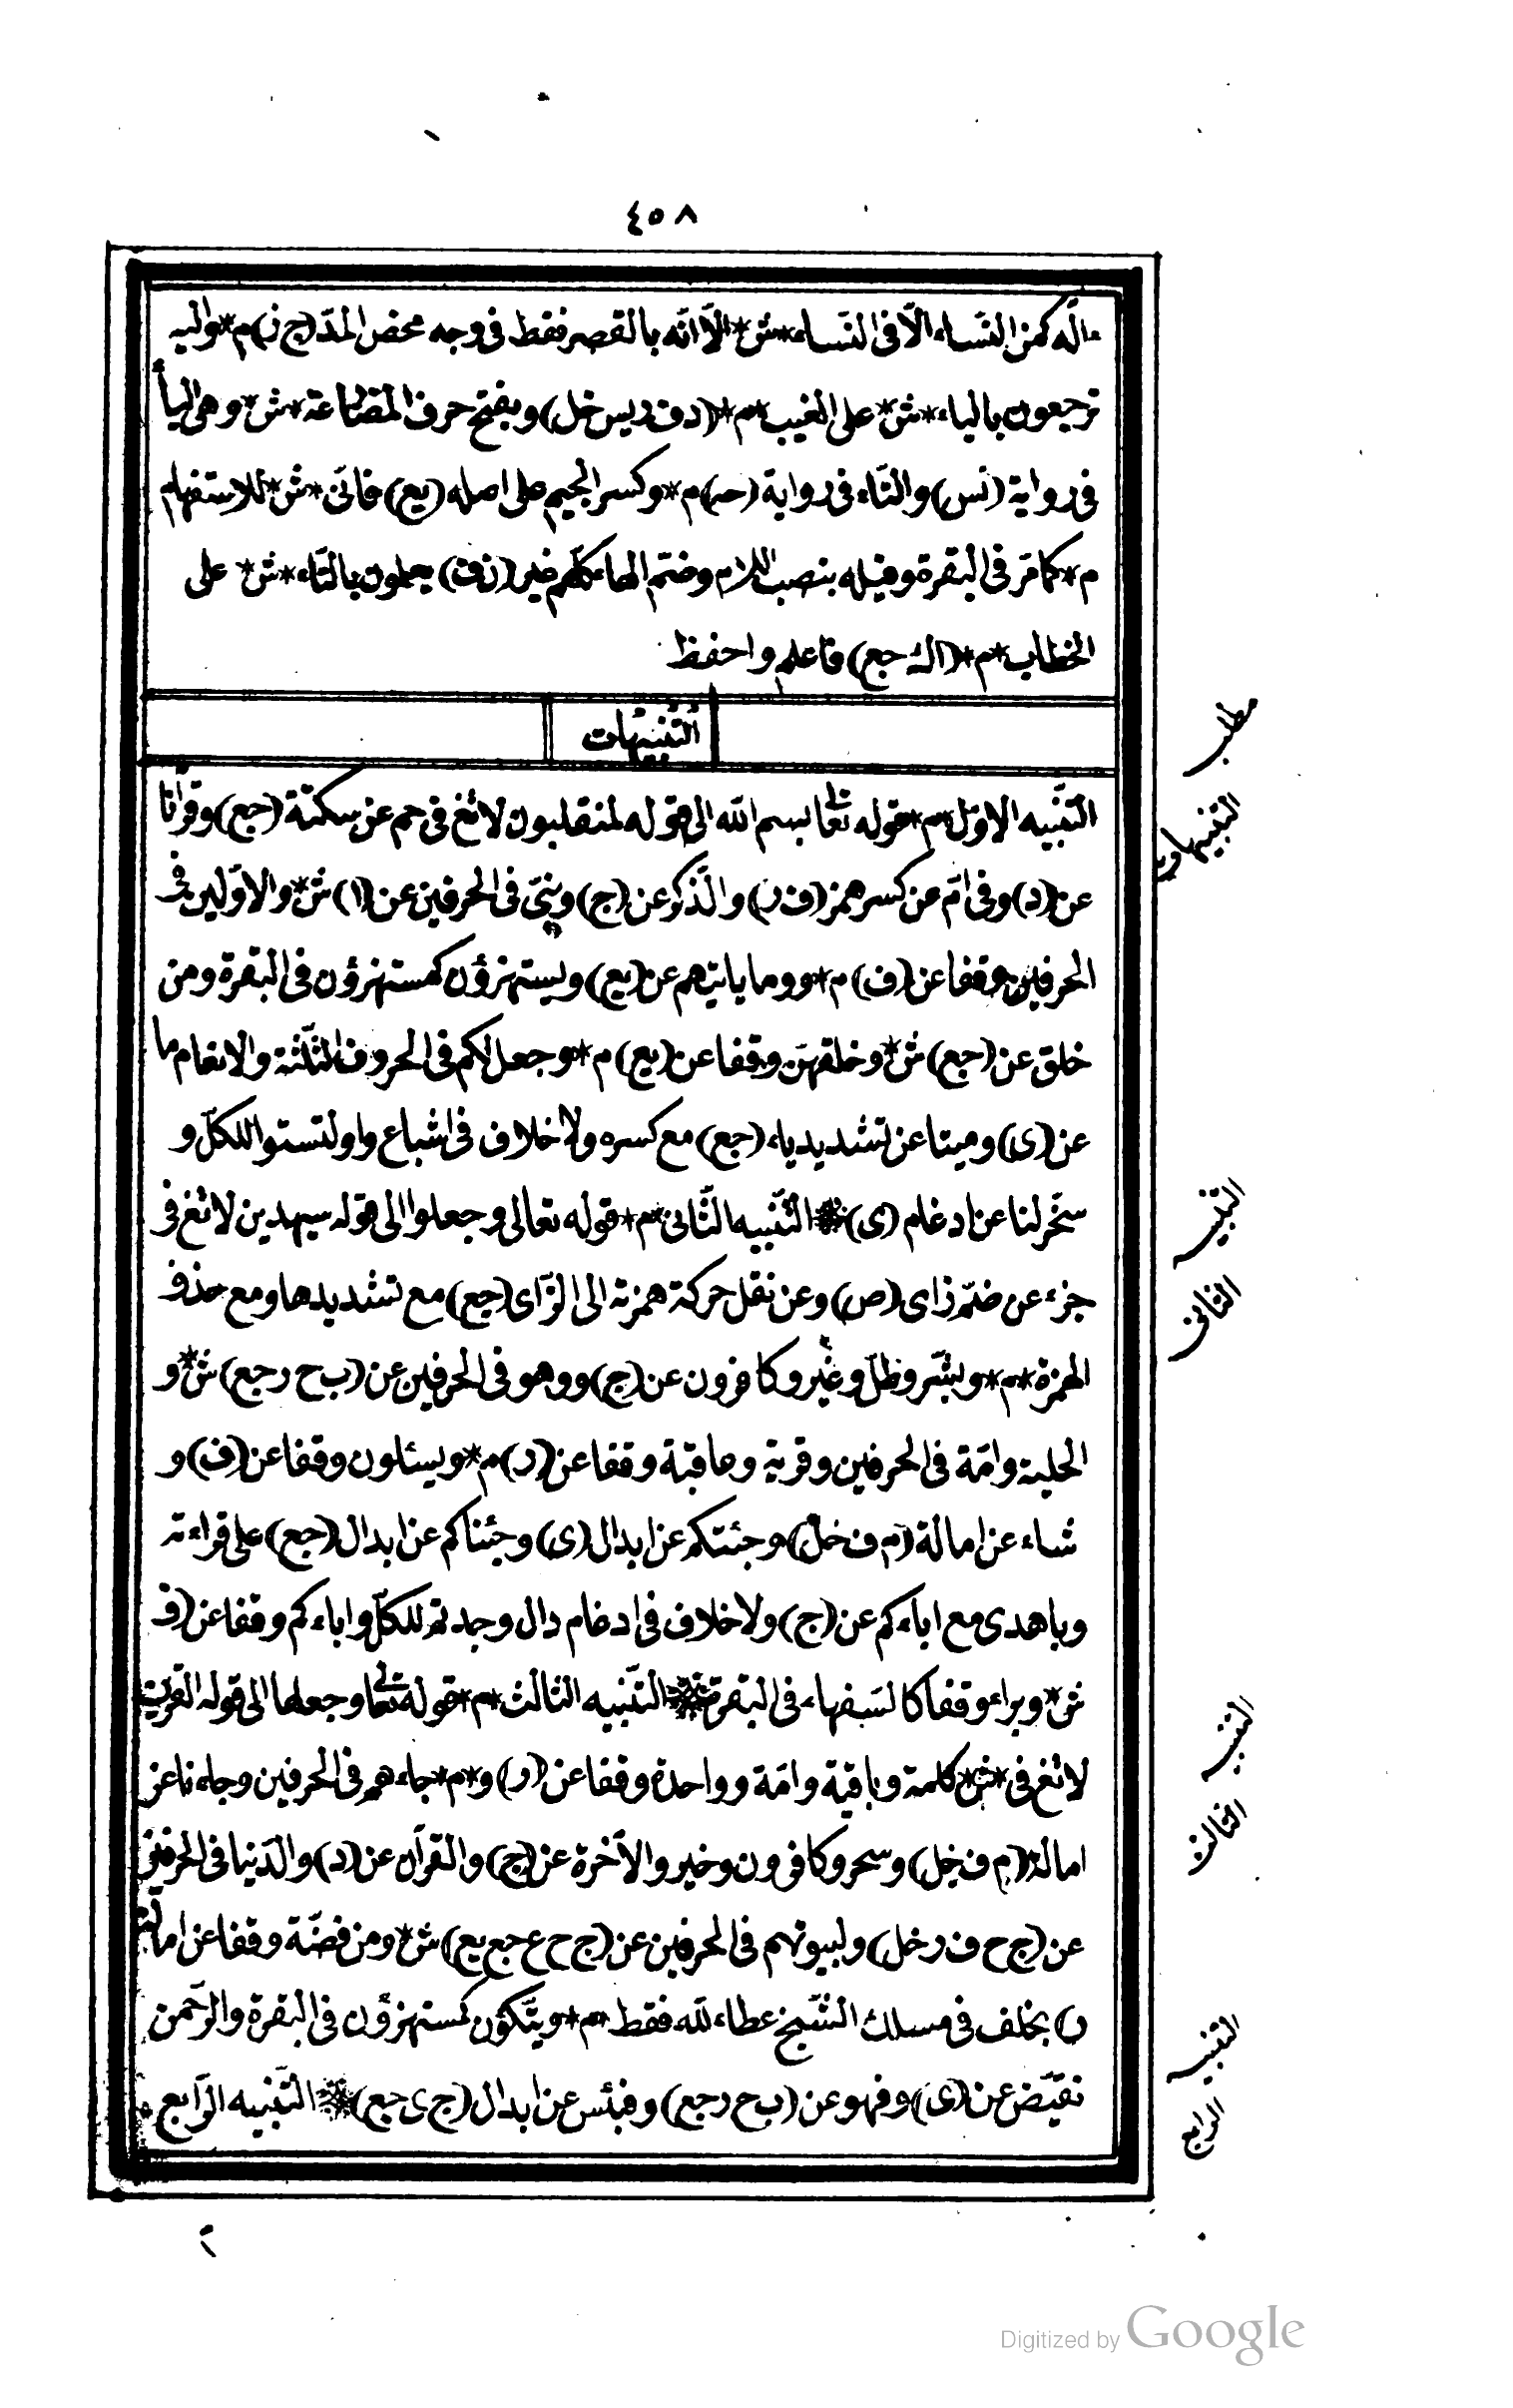 ٤٥٨
ءاله كمن النّساء الّا فى النّساء * ش * الّا انّه بالقصر فقط فى وجه محض المدّ (ج ز) م * واليه
ترجعون بالياء * ش * على الغيب * م * (د ف ريس خل) وبفتح حرف المضارعة * ش * وهى اليأ
فى رواية (يس) والتّاء فى رواية (حه) م * وكسر الجيم على اصله (يع) فانّى * ش * للاستفهام
م * كما مرّ فى البقرة وقيله بنصب اللام وضمّ الهاء كلّهم غير (ن ف) يعلمون بالتّاء * ش * على
الخطاب * م * (اك جع) فاعلم واحفظ
التّنبيهات
التّنبيه الاوّل * م * قوله تعالى بسم الله الى قوله لمنقلبون لا تغ فى حم عن سكتة (جع) وقرآنا
عن (د) وفى امّ من كسر همز (ف ر) والذّكر عن (ج) ونبىّ فى الحرفين عن (ا) ش * والاوّلين فى
الحرفين وقفا عن (ف) م * ووما ياتيهم عن (يع) ويستهزؤن كمستهزؤن فى البقرة ومن
خلق عن (جع) ش * وخلقهنّ وقفا عن (يع) م * وجعل لكم فى الحروف الثّلثة والانعام ما
عن (ى) وميتا عن تشديد ياء (جع) مع كسره ولا خلاف فى اشباع واو لتستوا للكلّ و
سخّر لنا عن ادغام (ى) * التّنبيه الثّانى * م * قوله تعالى وجعلوا الى قوله سيهدين لا تغ فى
جزء عن ضمّ زاى (ص) وعن نقل حركة همزته الى الزّاى (جع) مع تشديدها ومع حذف
الهمزة * م * وبشّر وظلّ وغير وكافرون عن (ج) ووهو فى الحرفين عن (ب ح ر جع) ش * و
الحلية وامّة فى الحرفين وقرية وعاقبة وقفا عن (ر) م * ويسئلون وقفا عن (ف) و
شاء عن امالة (م ف خل) وجئتكم عن ابدال (ى) وجئناكم عن ابدال (جع) على قراءته
وباهدى مع اباءكم عن (ج) ولا خلاف فى ادغام دال وجدتم للكلّ واباءكم وقفا عن (ف
ش * وبراء وقفا كالسّفهاء فى البقرة * التّنبيه الثالث * م * قوله تعالى وجعلها الى قوله القرين
لا تغ فى * ش * كلمة وباقية وامّة وواحدة وقفا عن (ر) و * م * جاءهم فى الحرفين وجاءنا عن
امالة (م ف خل) وسحر وكافرون وخير والآخرة عن (ج) والقرآن عن (د) والدّنيا فى الحرفين
عن (ج ح ف ر خل) ولبيوتهم فى الحرفين عن (ج ح ع جع يع) ش * ومن فضّة وقفا عن امالته
ر) بخلف فى مسلك الشّيخ عطاء لله فقط * م * ويتّكؤن كمستهزؤن فى البقرة والرّحمن
نقيّض عن (ى) وفهو عن (ب ح ر جع) وفبئس عن ابدال (ج ى جع) * التّنبيه الرّابع
مطلب
التنبيهات
التنبيه
الثانى
التنبيه
الثالث
التنبيه
الرابع
Digitized by Google